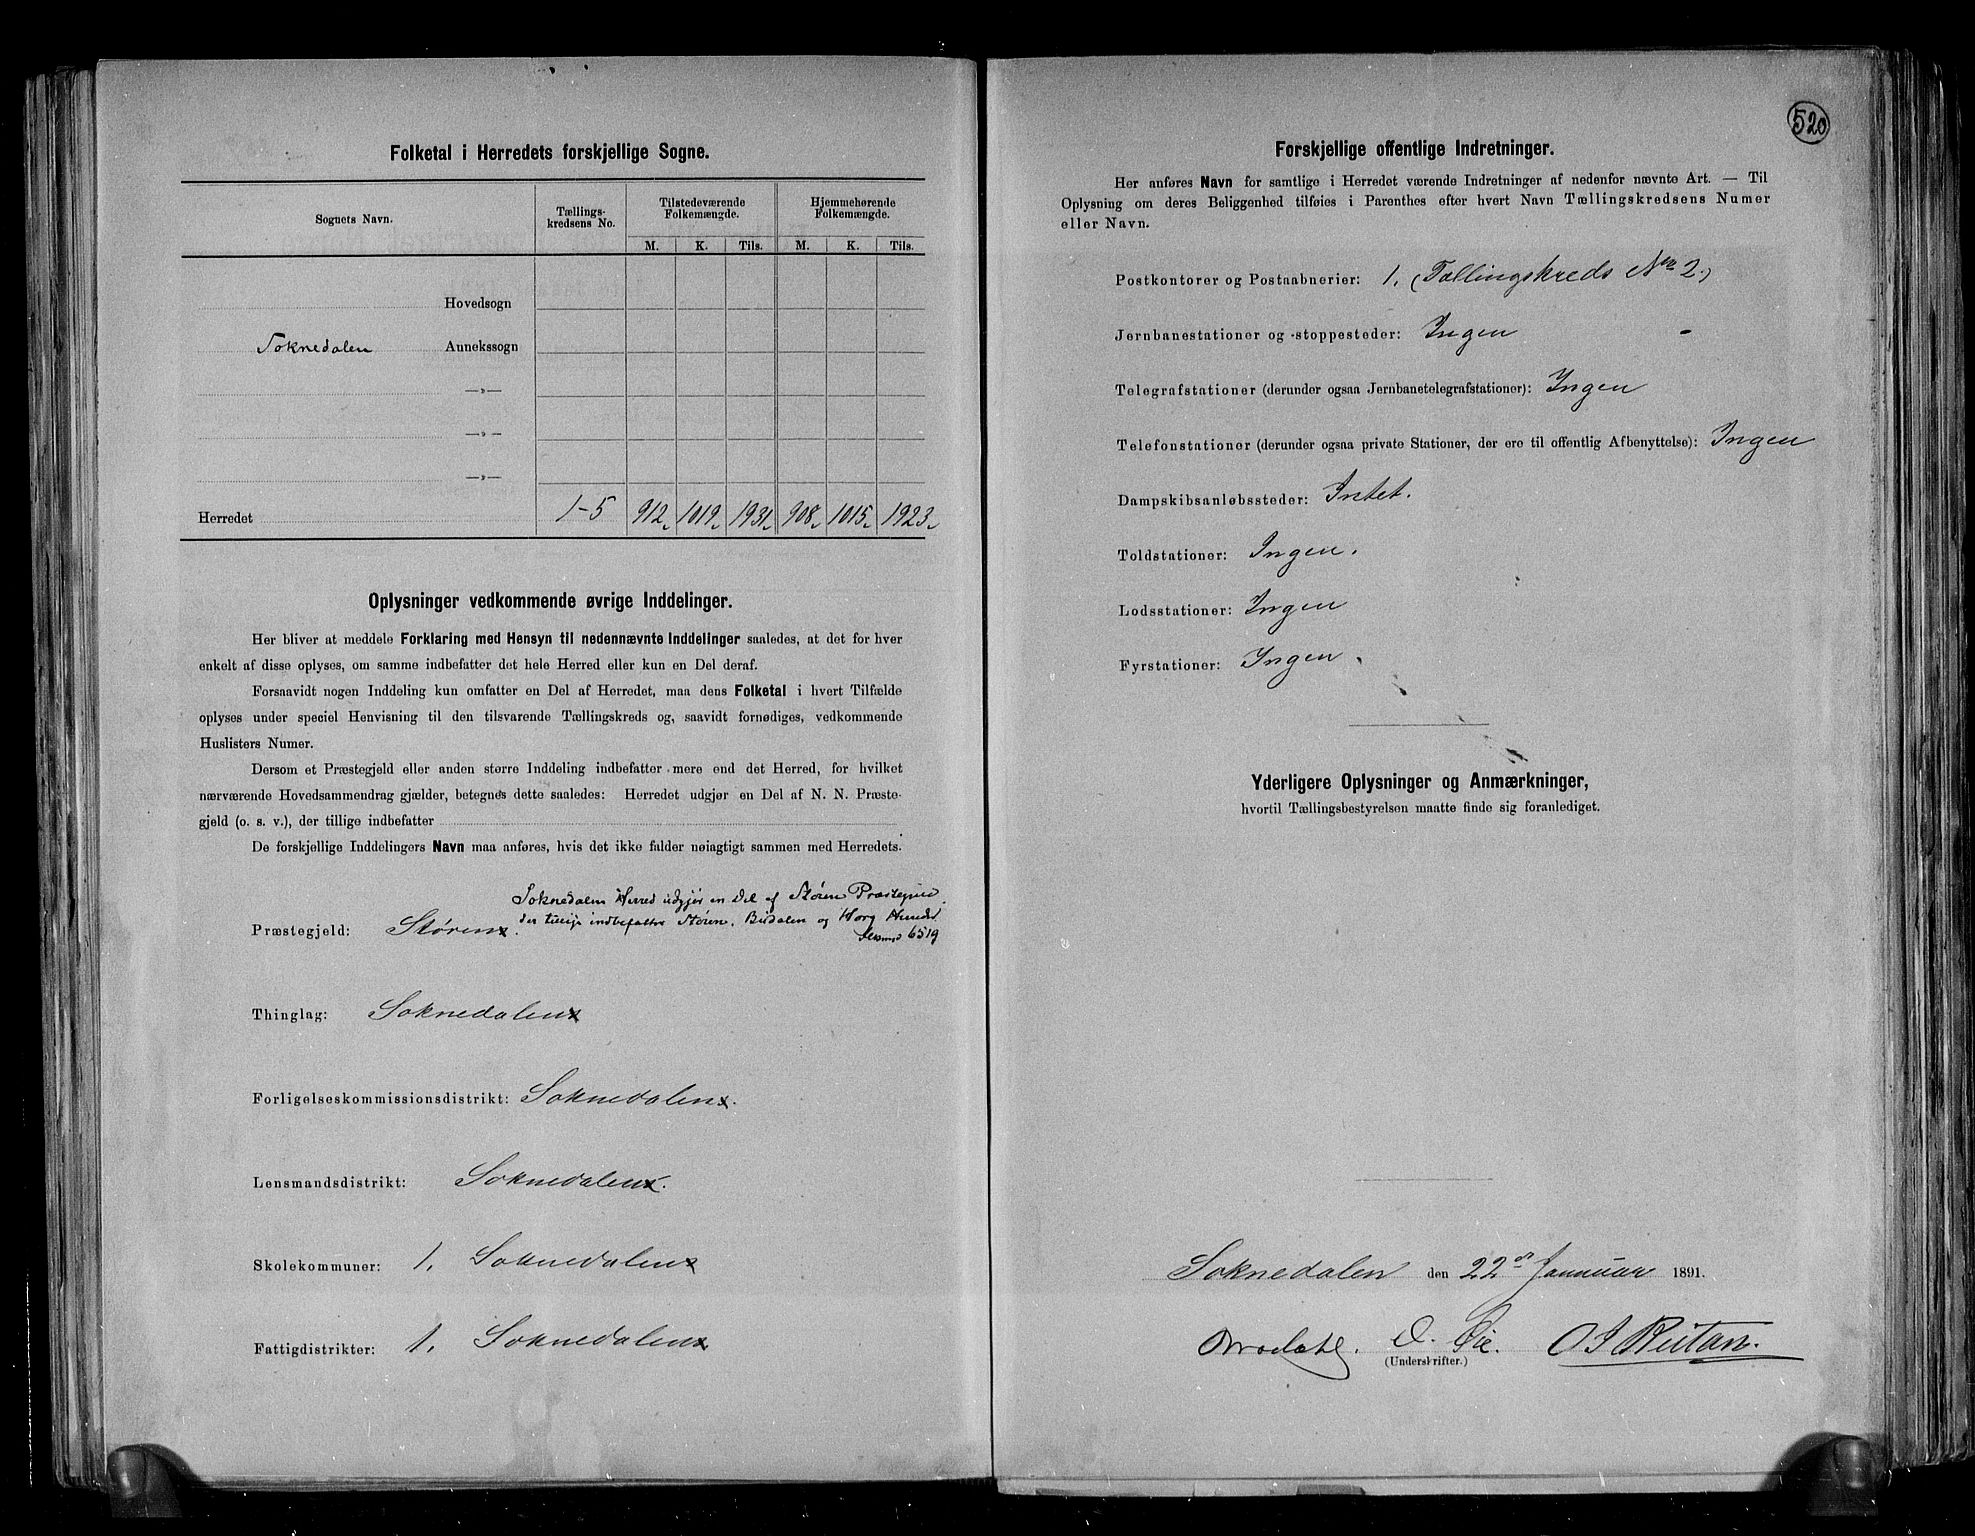 Folketal i Herredets forskjellige Sogne.
Sognets Navn.
Tællings-
kredsens No.
Tilstedeværende
Folkemængde.
Hjemmehørende
Folkemængde.
M. K. Tils. M. K. Tils.
Hovedsogn
Soknedalen Annekssogn
—»—
—»—
—»—
Herredet 1-5 912 1019 1931 908 1015 1923
Oplysninger vedkommende øvrige Inddelinger.
Her bliver at meddele Forklaring med Hensyn til nedennævnte Inddelinger saaledes, at det for hver
enkelt af disse oplyses, om samme indbefatter det hele Herred eller kun en Del deraf.
Forsaavidt nogen Inddeling kun omfatter en Del af Herredet, maa dens Folketal i hvert Tilfælde
oplyses under speciel Henvisning til den tilsvarende Tællingskreds og, saavidt fornødiges, vedkommende
Huslisters Numer.
Dersom et Præstegjeld eller anden større Inddeling indbefatter mere end det Herred, for hvilket
nærværende Hovedsammendrag gjælder, betegnes dette saaledes: Herredet udgjør en Del af N. N. Præste-
gjeld (o. s. v.), der tillige indbefatter
De forskjellige Inddelingers Navn maa anføres, hvis det ikke falder nøiagtigt sammen med Herredets.
Soknedalen Herred udgjør en Del af Støren Præstegjeld
der tillige indbefatter Støren, Budalen og Horg
6519
Præstegjeld: Støren
Thinglag: Soknedalen
Forligelseskommissionsdistrikt: Soknedalen
Lensmandsdistrikt: Soknedalen
Skolekommuner: 1. Soknedalen
Fattigdistrikter: 1. Soknedalen
520
Forskjellige offentlige Indretninger.
Her anføres Navn for samtlige i Herredet værende Indretninger af nedenfor nævnte Art. — Til
Oplysning om deres Beliggenhed tilføies i Parenthes efter hvert Navn Tællingskredsens Numer
eller Navn.
Postkontorer og Postaabnerier: 1. (Tællingskreds No 2.)
Jernbanestationer og -stoppesteder: Ingen
Telegrafstationer (derunder ogsaa Jernbanetelegrafstationer): Ingen
Telefonstationer (derunder ogsaa private Stationer, der ere til offentlig Afbenyttelse): Ingen
Dampskibsanløbssteder: Intet.
Toldstationer: Ingen.
Lodsstationer: Ingen
Fyrstationer: Ingen.
Yderligere Oplysninger og Anmærkninger,
hvortil Tællingsbestyrelsen maatte finde sig foranlediget.
Soknedalen den 22 Januar 1891.
O. Øie. O J Rutan.
(Underskrifter.)